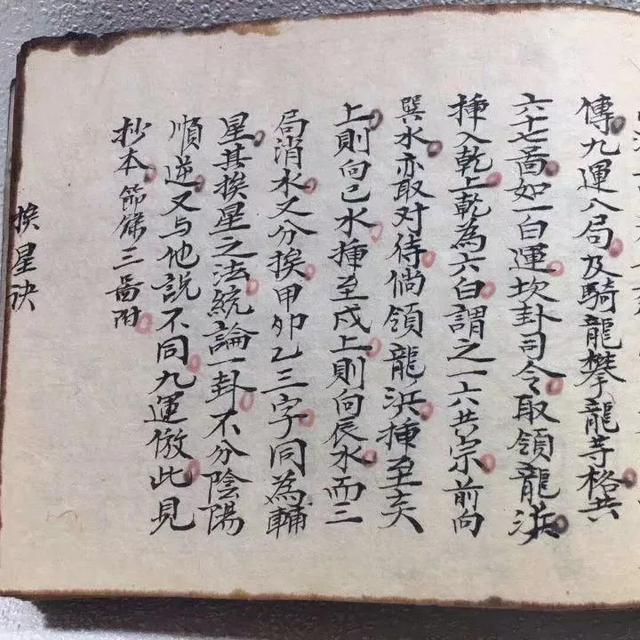 傳九運入局及騎龍攀龍等格共
六十七啚如一白運坎卦司令取領龍洪
揷入乾上乾為六白謂之一六共宗前向
巽水亦取对待倘領龍洪揷至亥
上則向巳水揷至戌上則向辰水而三
局消水又分挨甲卯乙三字同為輔
星其挨星之法統論一卦不分陰陽
順逆又与他說不同九運倣此見
抄本節錄三啚附
挨星诀